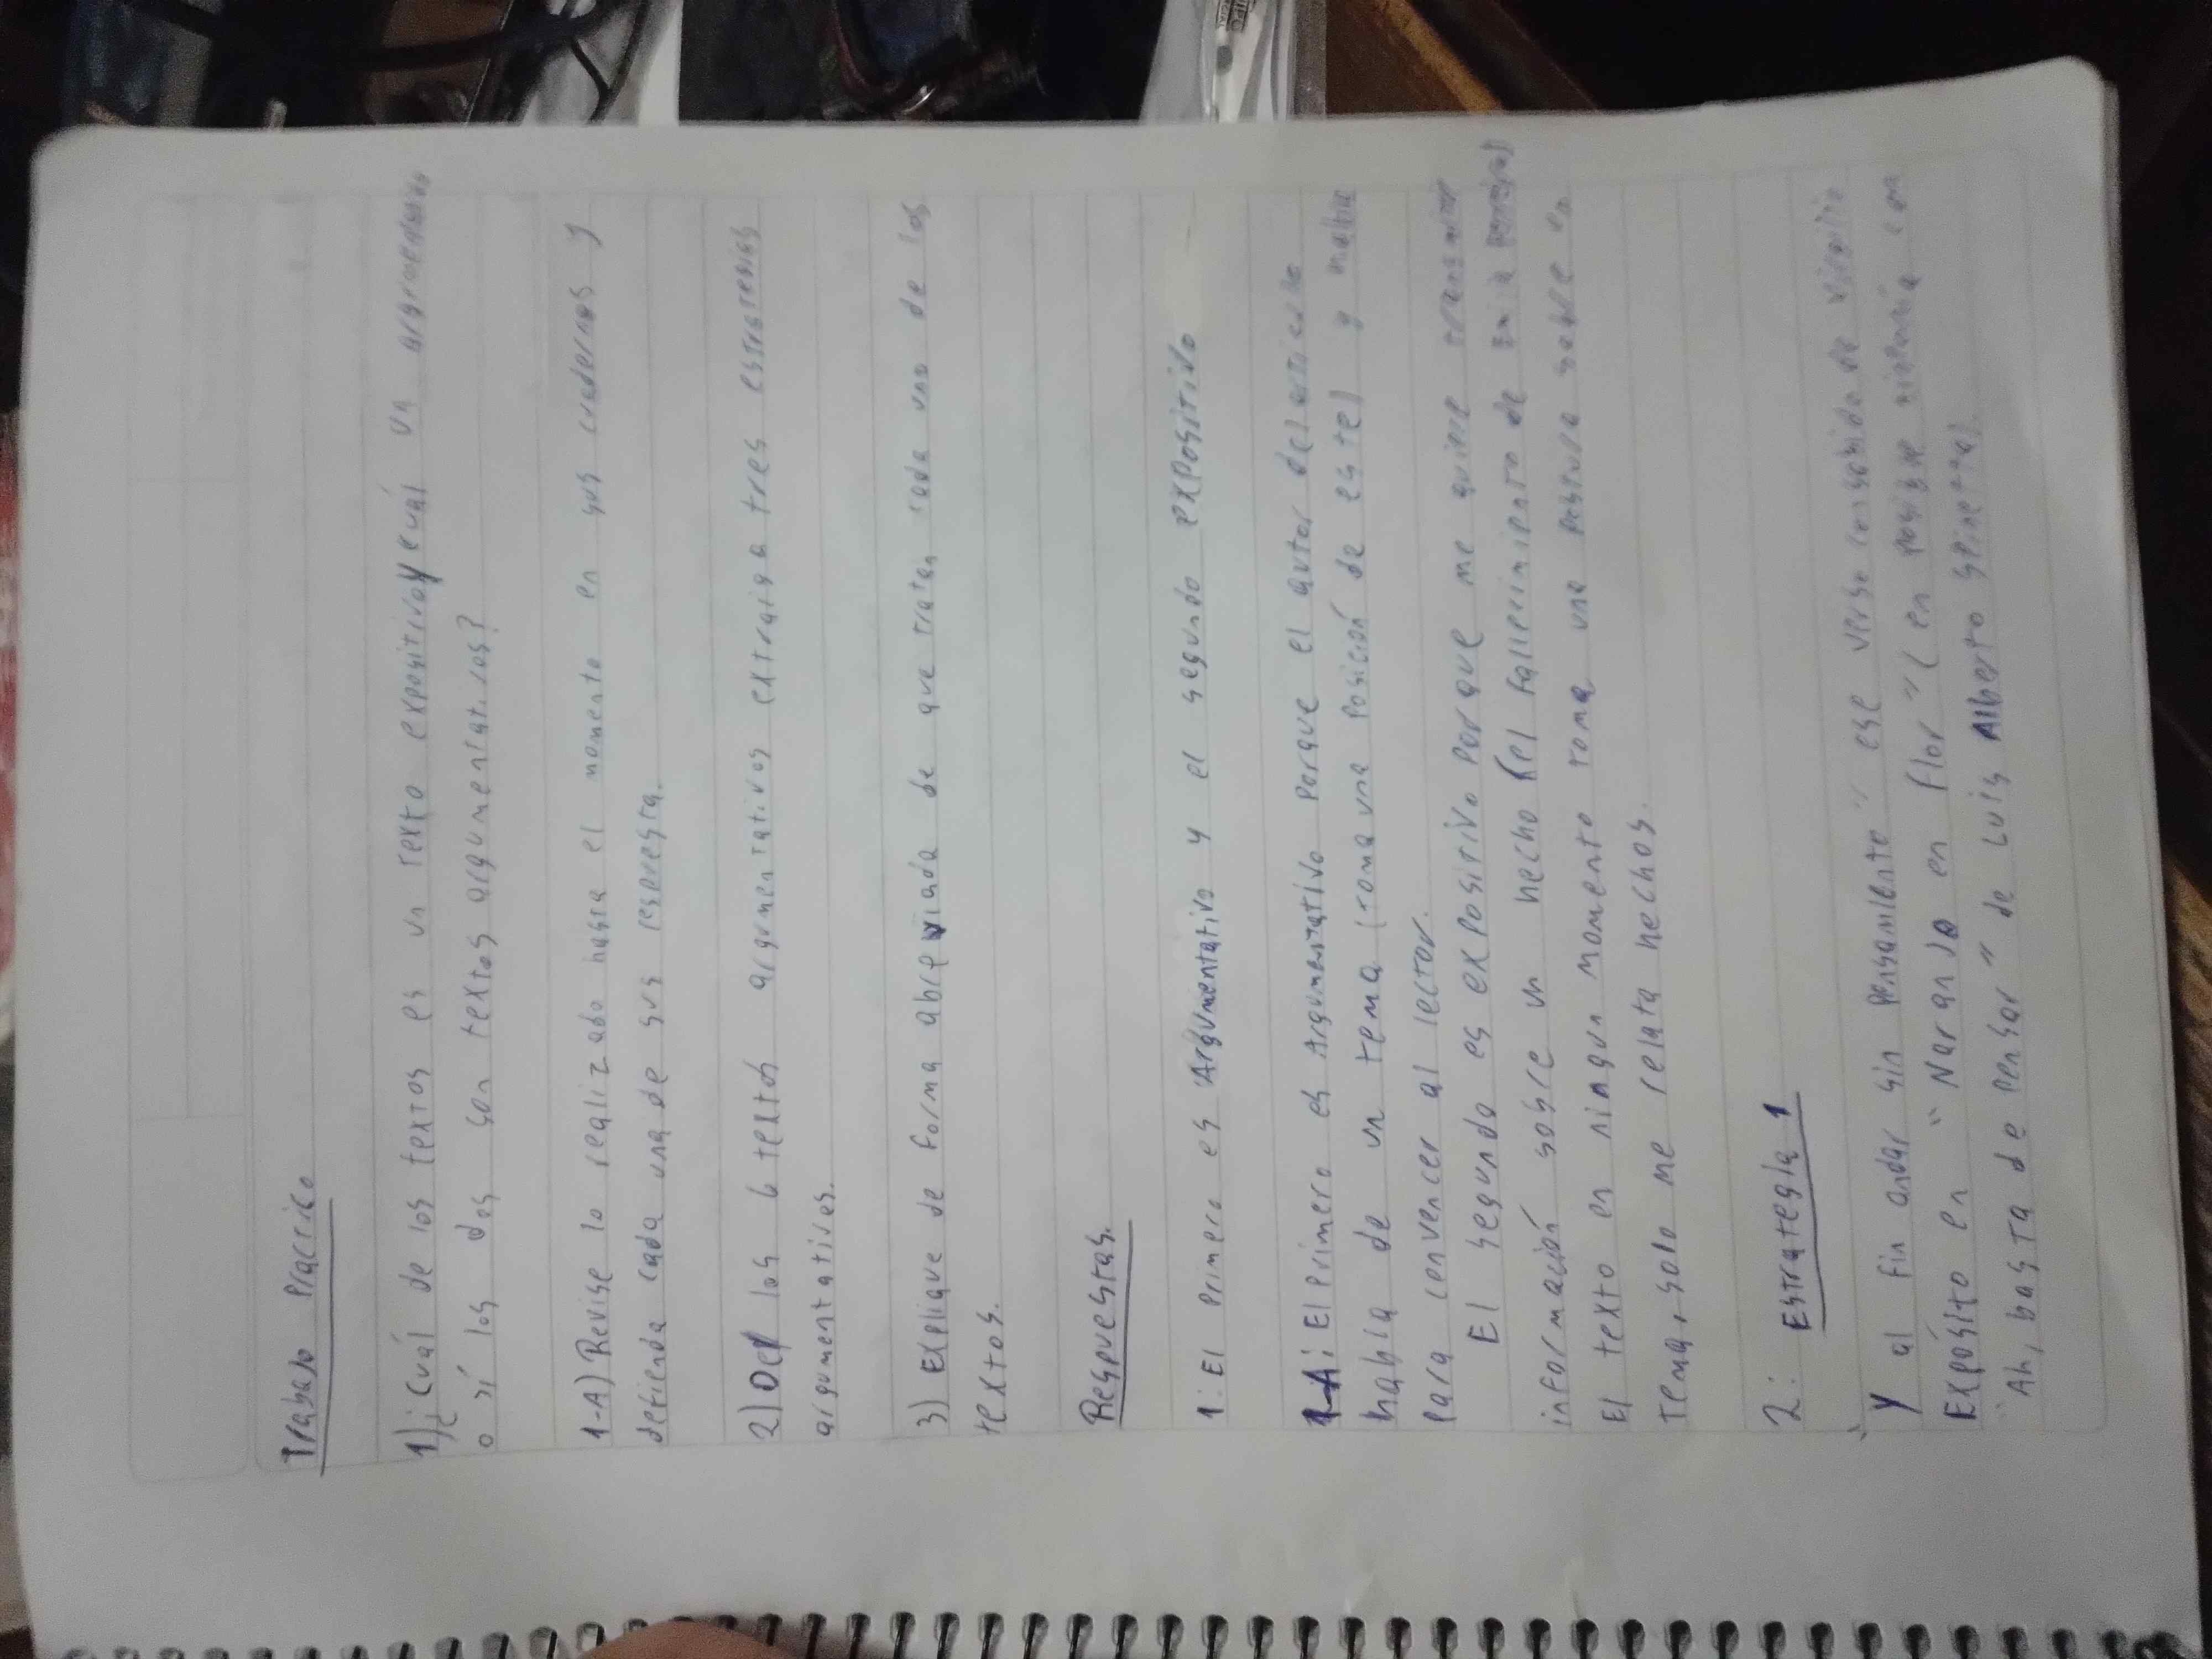 Trabajo Practico
1) ¿Cuál de los textos es un texto expositivo y cuál un argumentativo
o si los dos son textos argumentativos?
1-A) Revise lo realizado hasta el momento en sus cuadernos y
defienda cada una de sus respuesta.
2) De los textos argumentativos extraiga tres estrategias
argumentativas.
3) Explique de forma abreviada de que tratan cada uno de los
textos.
Respuestas.
1: El Primero es Argumentativo y el segundo expositivo
1-A: El Primero es Argumentativo Porque el autor del articulo
habla de un tema (toma una Posición de este) y
para convencer al lector.
El segundo es expositivo Porque me quiere transmitir
información sobre un hecho (el fallecimiento de
El texto en ningun momento toma una postura sobre
Tema, solo me relata hechos.
2: Estrategia 1
Y al fin andar sin pensamiento" ese verso de Virgilio
Expósito en "Naranjo en flor" (en posible con
"Ah, basta de pensar" de Luis Alberto Spinetta).